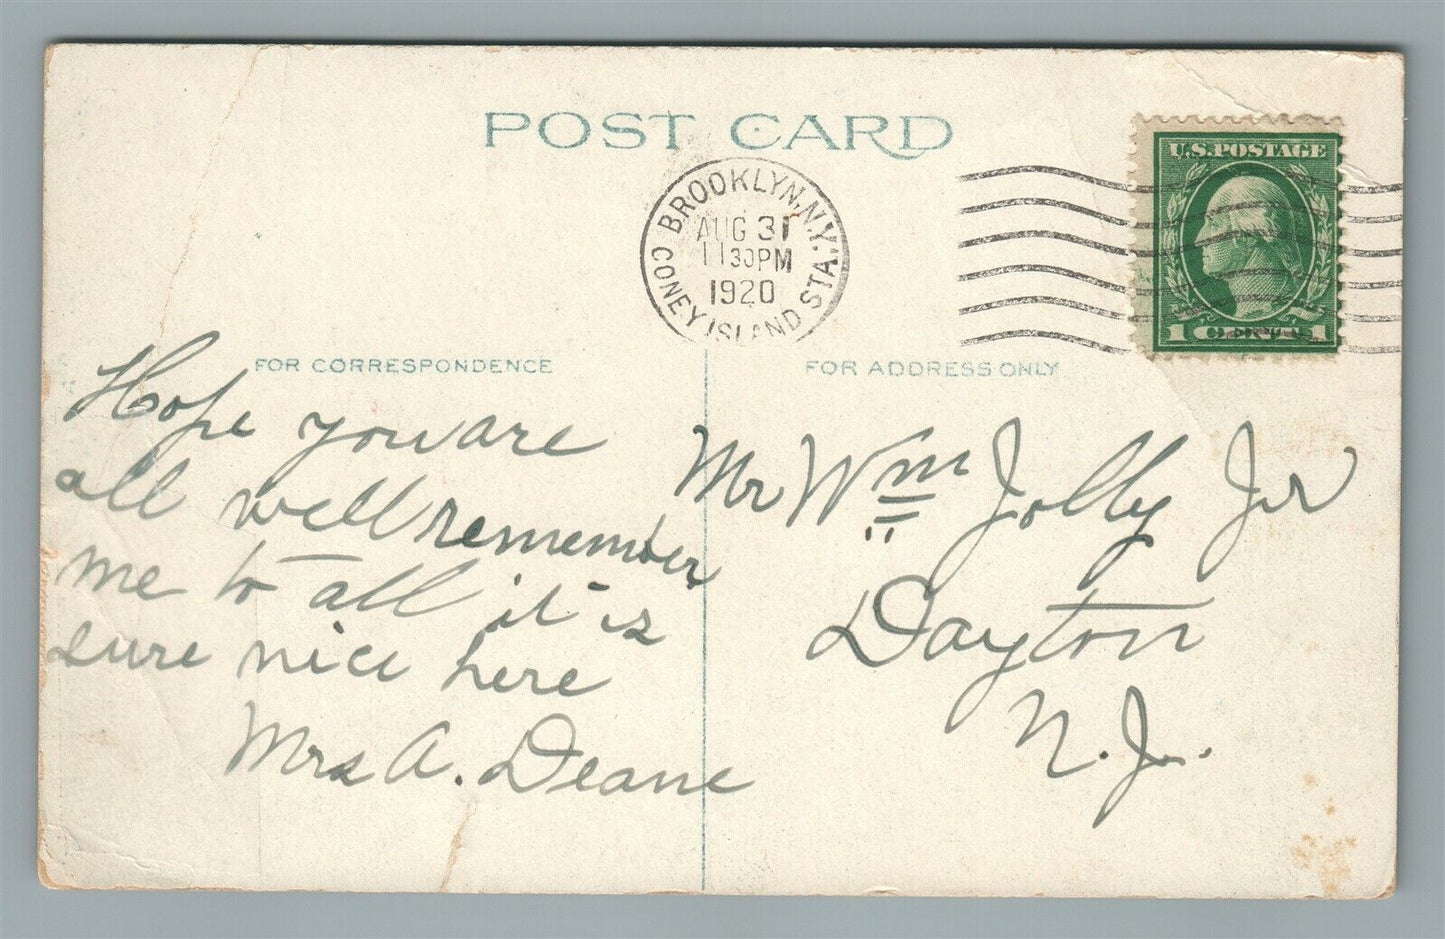 POST CARD
BROOKLYN, N.Y.
CONEY ISLAND STA.
AUG 31
11 30PM
1920
U.S. POSTAGE
1 CENT 1
FOR CORRESPONDENCE
FOR ADDRESS ONLY
Hope you are
all well remember
me to all it is
sure nice here
Mrs A. Deane
Mr Wm Jolly Jr
Dayton
N.J.